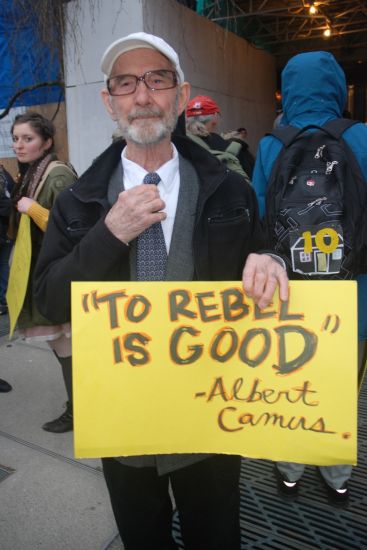 10
"TO REBEL
IS GOOD"
-Albert
Camus.